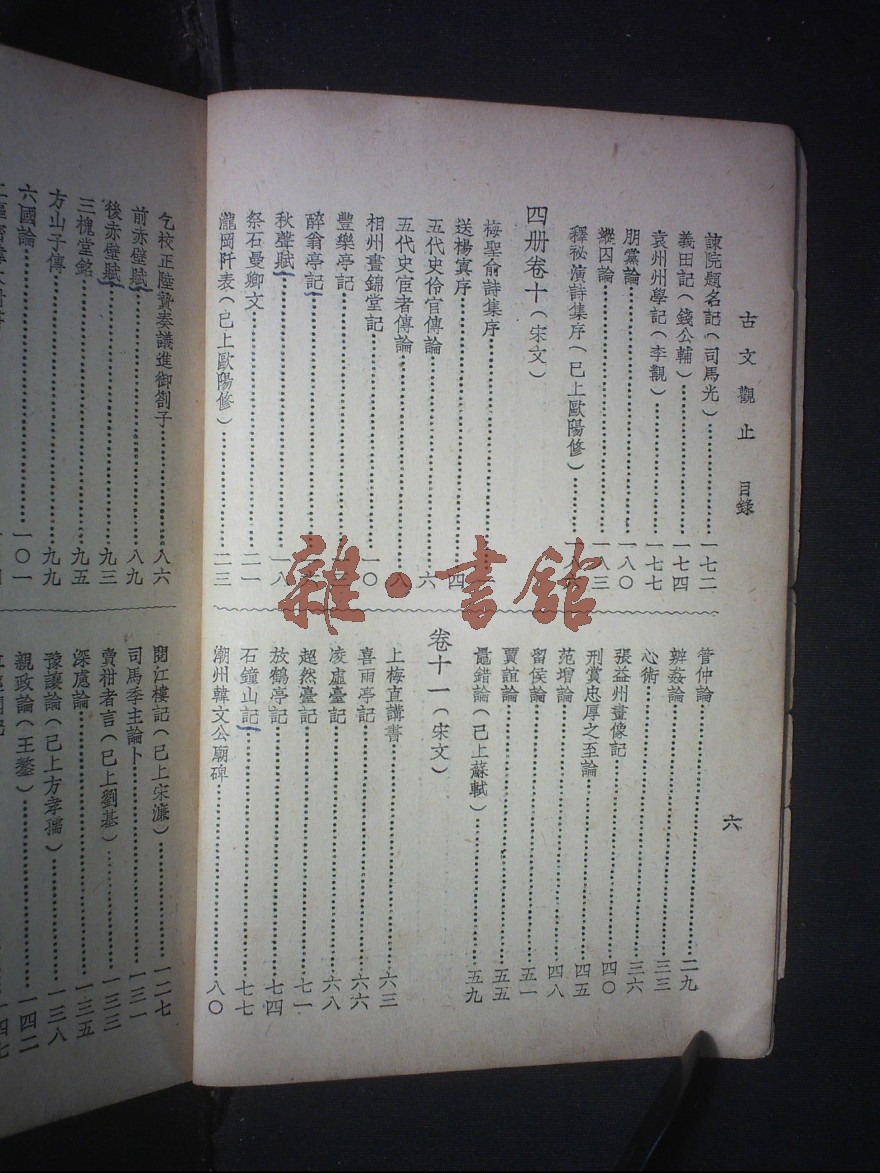 古文觀止 目錄
六
諫院題名記（司馬光）……一七二
義田記（錢公輔）……一七四
袁州州學記（李覯）……一七七
朋黨論……一八〇
縱囚論……一八三
釋祕演詩集序（已上歐陽修）……一八
四册卷十（宋文）
梅聖俞詩集序……
送楊寘序……四
五代史伶官傳論……六
五代史宦者傳論……八
相州晝錦堂記……一〇
豐樂亭記……
醉翁亭記……
秋聲賦……一八
祭石曼卿文……二一
瀧岡阡表（已上歐陽修）……二三
管仲論……二九
辨姦論……三三
心術……三六
張益州畫像記……四〇
刑賞忠厚之至論……四五
范增論……四八
留侯論……五一
賈誼論……五五
鼂錯論（已上蘇軾）……五九
卷十一（宋文）
上梅直講書……六三
喜雨亭記……六六
凌虛臺記……六八
超然臺記……七一
放鶴亭記……七四
石鐘山記……七七
潮州韓文公廟碑……八〇
乞校正陸贄奏議進御劄子……八六
前赤壁賦……八九
後赤壁賦……九三
三槐堂銘……九五
方山子傳……九九
六國論……一〇一
閱江樓記（已上宋濂）……一二七
司馬季主論卜……一三一
賣柑者言（已上劉基）……一三三
深慮論……一三五
豫讓論（已上方孝孺）……一三八
親政論（王鏊）……一四二
一四七
雜·書館